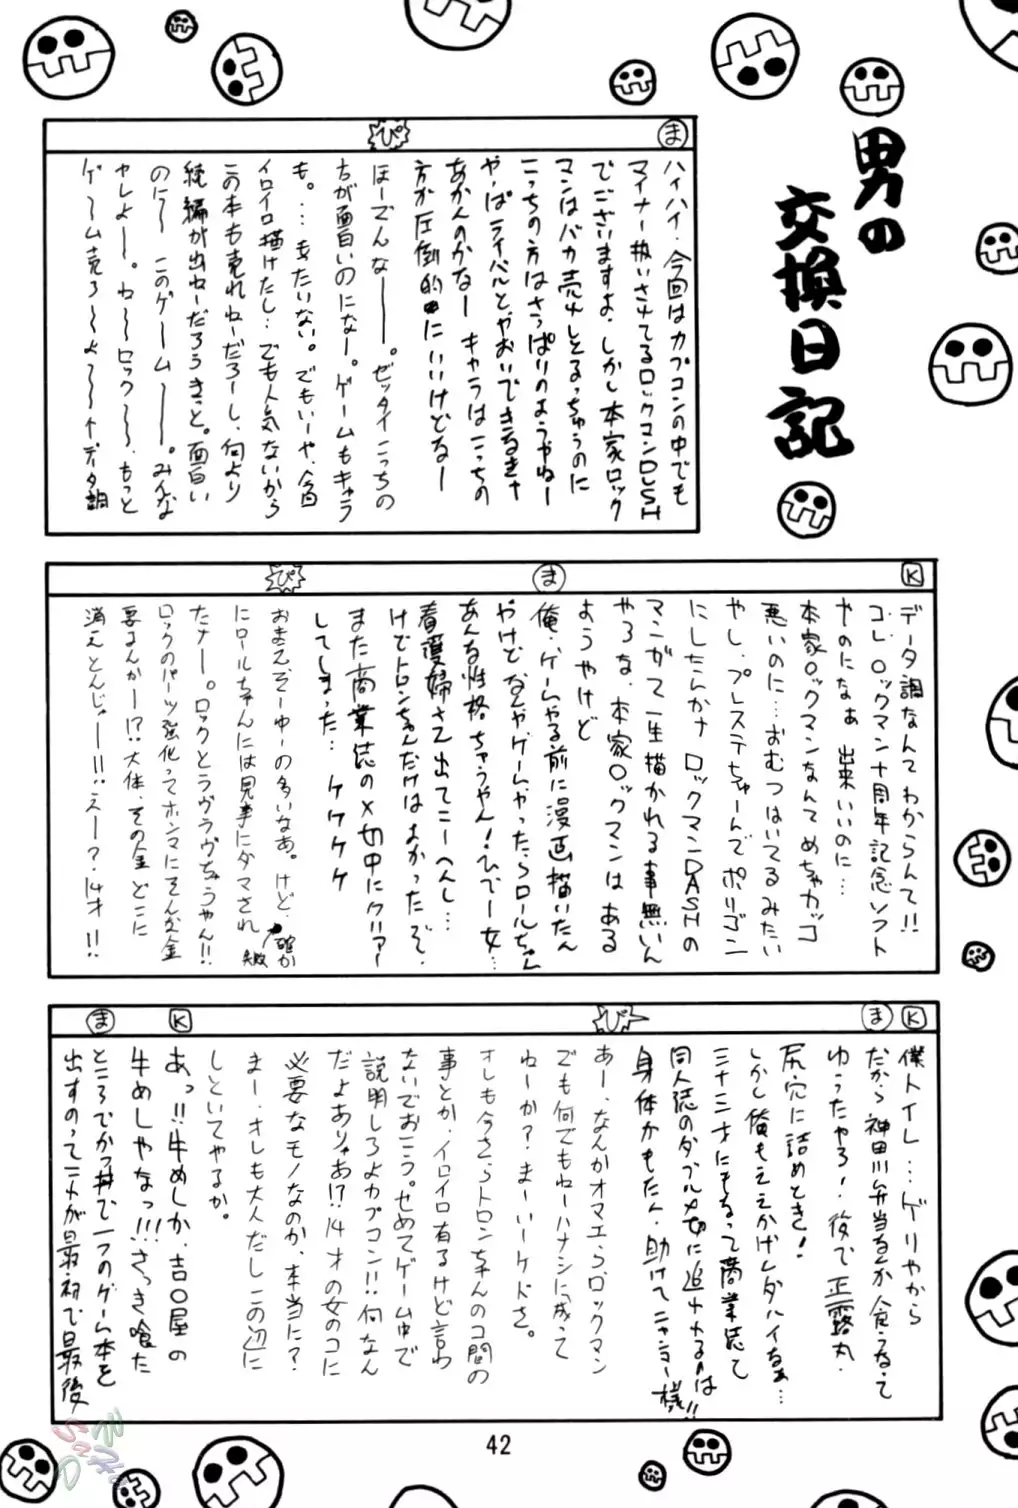 男の
交換日記
ま
ハイハイ、今回はカプコンの中でも
マイナー扱いされてるロックマンDASH
でございますよ。しかし本家ロック
マンはバカ売れしとるっちゅうのに
こっちの方はさっぱりのようやねー
やっぱライバルとやおいできるきャ
あかんのかなー キャラはこっちの
方が圧倒的にいいけどなー
ぴ
ほーでんなーー。ゼッタイこっちの
ちが面白いのになー。ゲームもキャラ
も。…もったいない。でもいーや、今回
イロイロ描けたし…でも人気ないから
この本も売れねーだろーし、何より
続編が出ねーだろうきっと。面白い
のに〜 このゲームーー。みんな
やれよー。ね〜ロック〜、もっと
ゲ〜ム売ろ〜よ〜〜↑データ調
K
データ調なんてわからんて!!
コレ、ロックマン十周年記念ソフト
やのになぁ 出来いいのに…
本家ロックマンなんてめちゃカッコ
悪いのに…おむつはいてるみたい
やし、プレステちゃーんでポリゴン
にしたんかナ ロックマンDASHの
マンガて一生描かれる事無いん
やろな、本家ロックマンはある
ようやけど
ま
俺、ゲームやる前に漫画描いたん
やけど なんやゲームやったらロールちゃん
あんな性格ちゃうやん!ひでー女…
看護婦さん出てこーへんし…
けどトロンちゃんだけはよかったぞ。
また商業誌の〆切中にクリアー
してしまった… ケケケケ
ぴ
おまえそーゆーの多いなあ。けど、確か
にロールちゃんには見事にダマされ
たナー。ロックとラヴラヴちゃうやん!!
ロックのパーツ強化ってホンマにそんな金
要るんかー!?大体、その金どこに
消えとんじゃー!!えー?14才!!
K
僕トイレ…ゲリやから
ま
だから神田川弁当なんか食うなって
ゆったやろ!後で正露丸、
尻穴に詰めとき!
しかし俺もええかげんダハイなぁ…
三十三才にもなって商業誌て
同人誌のダブル〆切に追われるのは!!
身体がもたん、助けてニャンコー様
ぴ
あー、なんかオマエら、ロックマン
でも何でもねーハナシに成って
ねーか?まーいーケドさ。
オレも今さらトロンちゃんのコ間の
事とか、イロイロ有るけど言わ
ないでおこう。せめてゲーム中で
説明しろよカプコン!!何なん
だよありゃあ!?14才の女のコに
必要なモノなのか、本当に?
まー、オレも大人だしこの辺に
しといてやるか。
K
あっ!!牛めしか、吉〇屋の
牛めしやなっ!!!さっき喰た
ま
ところでかつ丼で一つのゲーム本を
出すのってこれが最初で最後
42